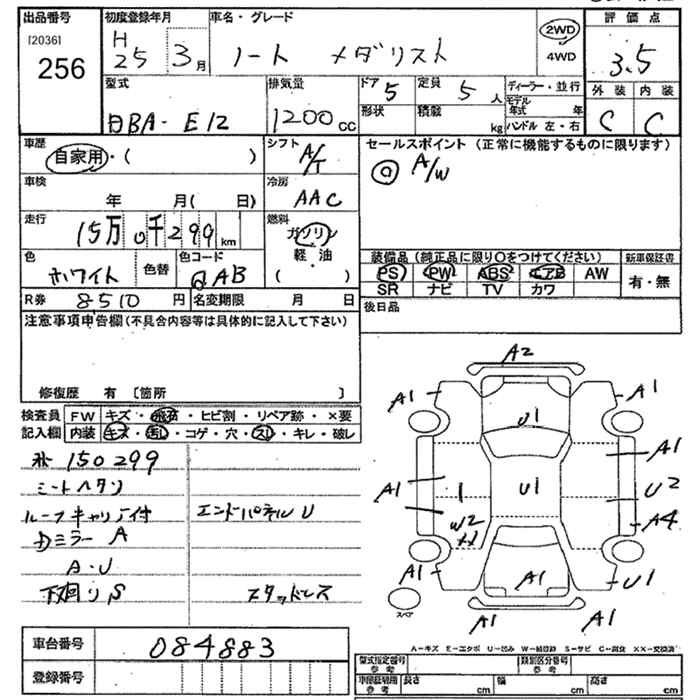 出品番号 初度登録年月 車名・グレード 評価点
[2036] 256
H 25 3月 ノート メダリスト 2WD 4WD 3.5
型式 排気量 ドア 5 定員 5人 ディーラー・並行 外装 内装
形状 積載 kg モデル年式 年 C C
DBA- E12 1200cc ハンドル 左・右
車歴 シフト セールスポイント(正常に機能するものに限ります)
自家用・( ) A/T ◎ A/W
車検 冷房
年 月( 日) AAC
走行 燃料
15万0千299km ガソリン
色 色コード 軽・油
ホワイト 色替 QAB ( )
装備品(純正品に限り○をつけてください) 新車保証書
PS PW ABS エアB AW 有・無
SR ナビ TV カワ
R券 8510円 名変期限 月 日 後日品
注意事項申告欄(不具合内容等は具体的に記入して下さい)
修復歴 有 〔箇所 〕
検査員 FW キズ・飛石・ヒビ割・リペア跡・×要
記入欄 内装 キズ・汚れ・コゲ・穴・スレ・キレ・破レ
150299
シートヘタリ
ルーフキャリア付 エンドパネルU
ドミラーA
A・U
下廻りS スタッドレス
A2
A1 A1
U1
A1
A1 1 U1 U2
W2 A4
A1 A1 U1
スペア
A1 A1
車台番号 084883
登録番号
A-キズ E-エクボ U-凹み W-補修跡 S-サビ C-腐食 XX-交換済
型式指定番号 参考 類別区分番号 参考
車両証明用 参考 長さ cm 幅 cm 高さ cm